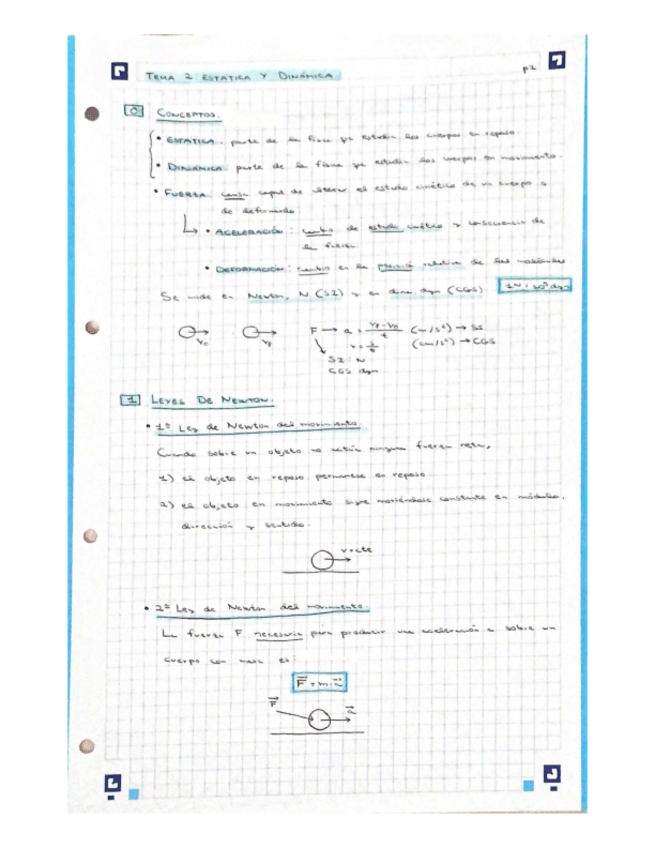 TEMA 2 ESTÁTICA Y DINÁMICA
p2
0 CONCEPTOS.
• ESTÁTICA: parte de la física que estudia los cuerpos en reposo.
• DINÁMICA: parte de la física que estudia los cuerpos en movimiento.
• FUERZA: causa capaz de alterar el estado cinético de un cuerpo o
de deformarlo
• ACELERACIÓN: cambio de estado cinético y consecuencia de
la fuerza
• DEFORMACIÓN: cambio en la posición relativa de las moléculas
Se mide en Newton, N (SI) y en dina, dyn (CGS) 1N = 10⁵ dyn
V₀ Vf F → a = Vf - V₀ / t (m/s²) → SI
(cm/s²) → CGS
SI: N
CGS dyn
1 LEYES DE NEWTON.
• 1ª Ley de Newton del movimiento.
Cuando sobre un objeto no actúa ninguna fuerza neta,
1) el objeto en reposo permanece en reposo
2) el objeto en movimiento sigue moviéndose constante en módulo,
dirección y sentido.
v = cte
• 2ª Ley de Newton del movimiento.
La fuerza F necesaria para producir una aceleración a sobre un
cuerpo con masa es:
F⃗ = m·a⃗
F⃗ a⃗